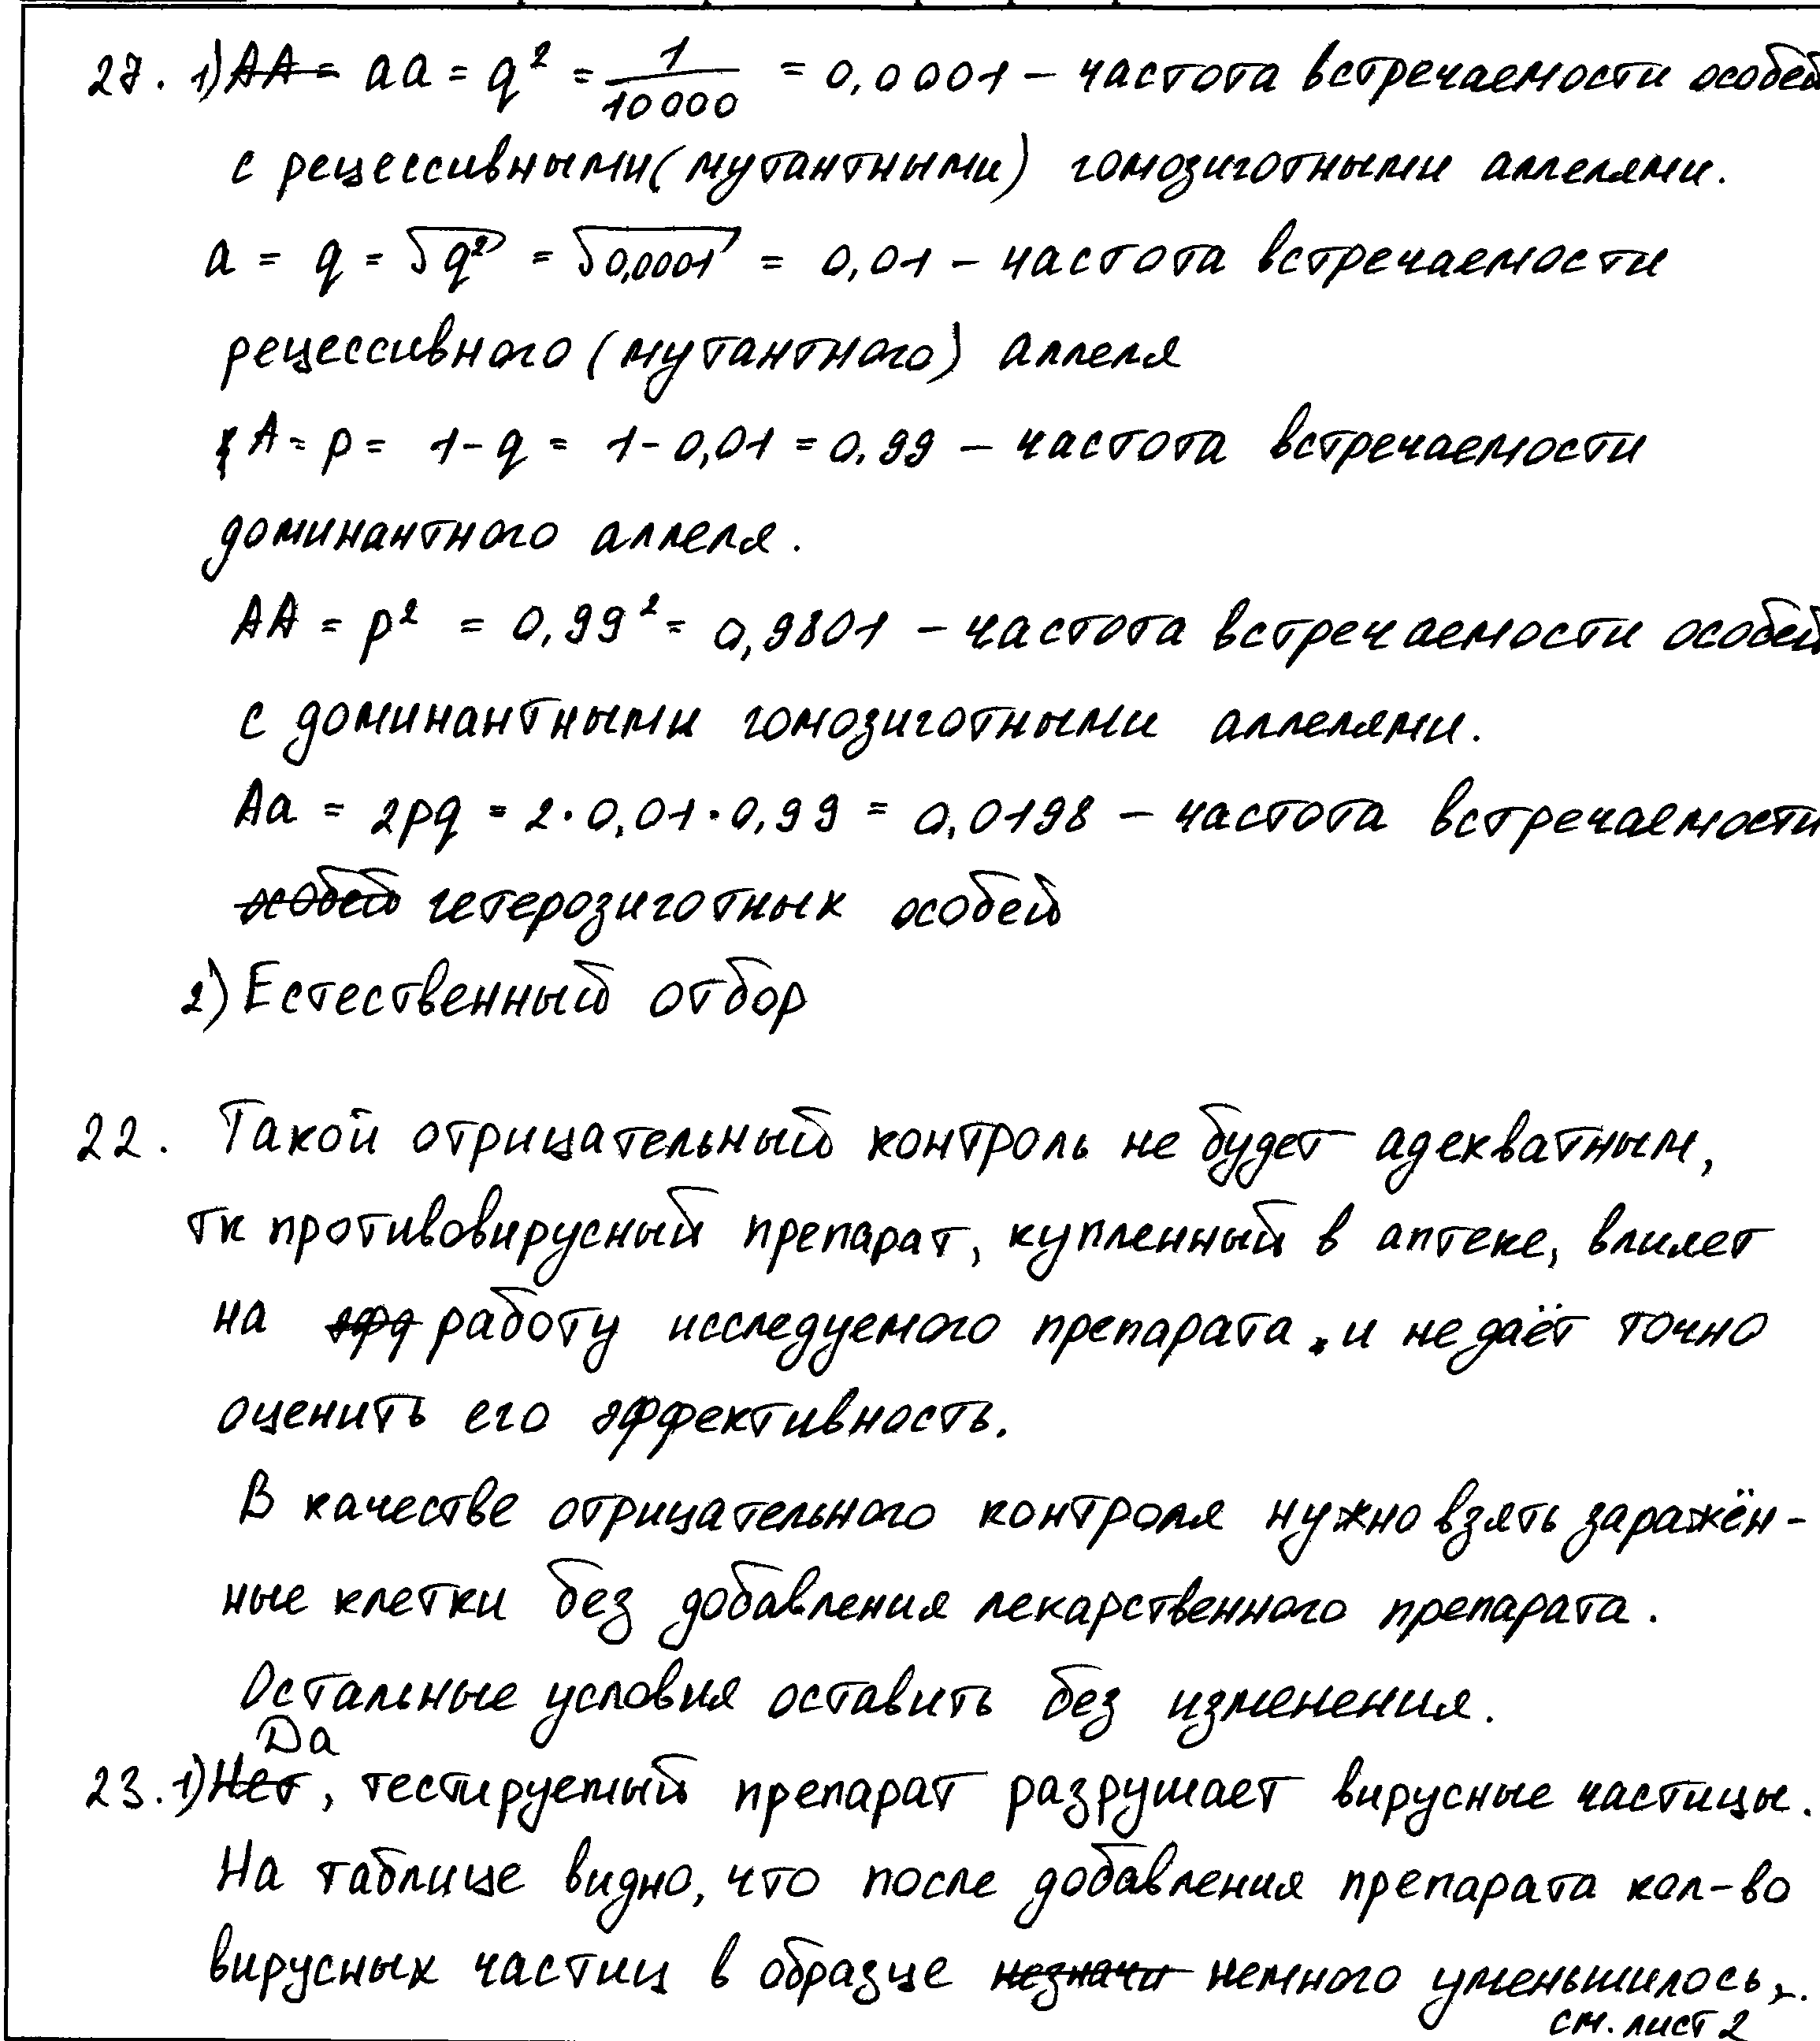 27. 1) AA = aa = q² = 1/10000 = 0,0001 – частота встречаемости особей
с рецессивными (мутантными) гомозиготными аллелями.
a = q = √q² = √0,0001 = 0,01 – частота встречаемости
рецессивного (мутантного) аллеля
A = p = 1 - q = 1 - 0,01 = 0,99 – частота встречаемости
доминантного аллеля.
AA = p² = 0,99² = 0,9801 – частота встречаемости особей
с доминантными гомозиготными аллелями.
Aa = 2pq = 2·0,01·0,99 = 0,0198 – частота встречаемости
особей гетерозиготных особей
2) Естественный отбор
22. Такой отрицательный контроль не будет адекватным,
тк противовирусный препарат, купленный в аптеке, влияет
на эфф работу исследуемого препарата, и не даёт точно
оценить его эффективность.
В качестве отрицательного контроля нужно взять заражён-
ные клетки без добавления лекарственного препарата.
Остальные условия оставить без изменения.
Да
23. 1) Нет, тестируемый препарат разрушает вирусные частицы.
На таблице видно, что после добавления препарата кол-во
вирусных частиц в образце незначи немного уменьшилось,.
см. лист 2